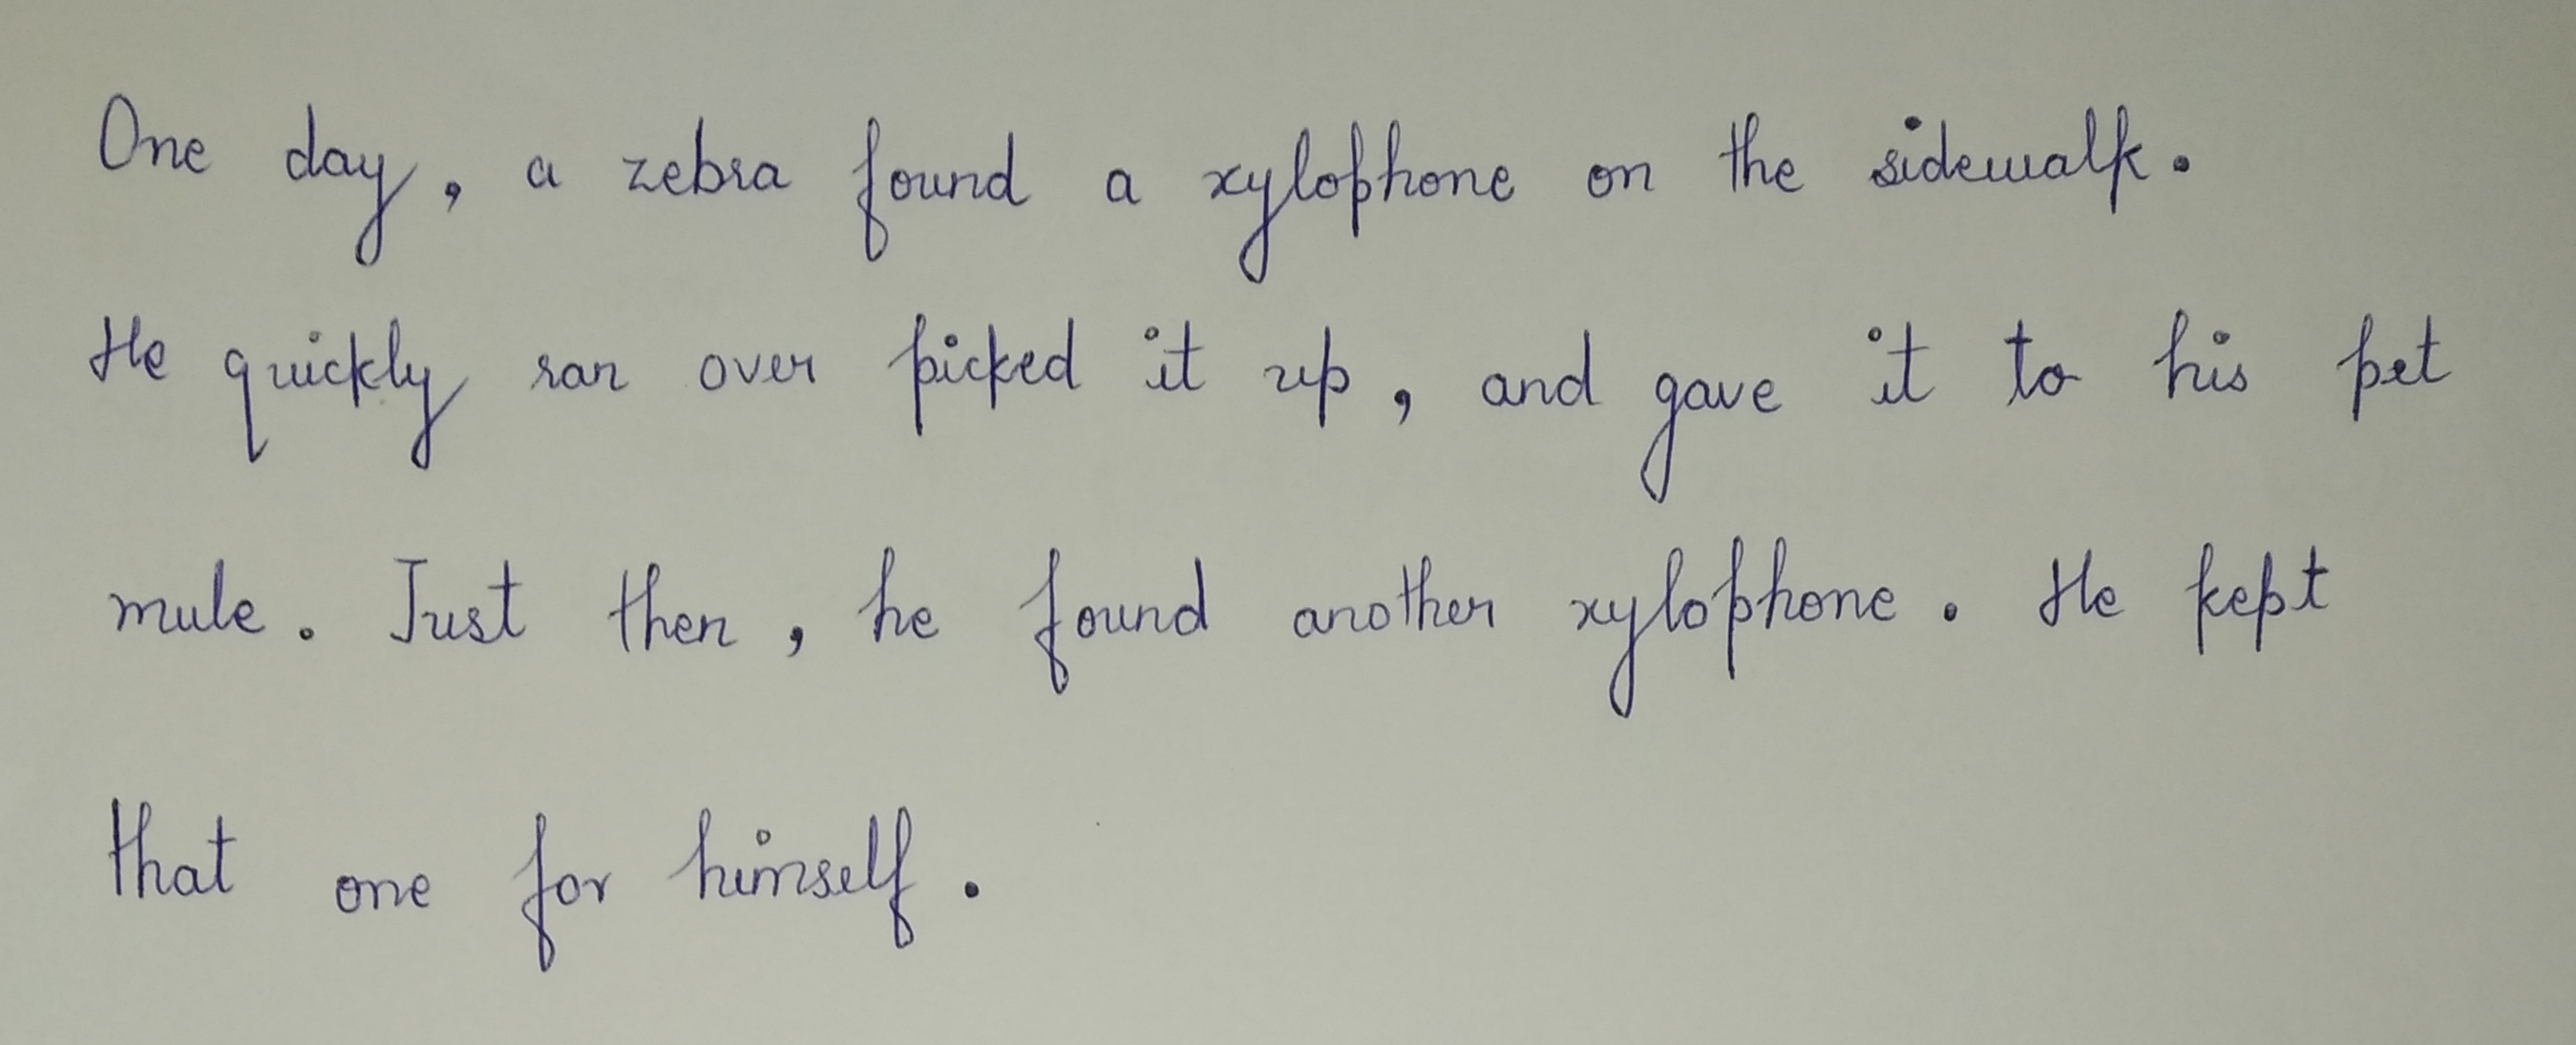 One day, a zebra found a xylophone on the sidewalk.
He quickly ran over picked it up, and gave it to his pet
mule. Just then, he found another xylophone. He kept
that one for himself.